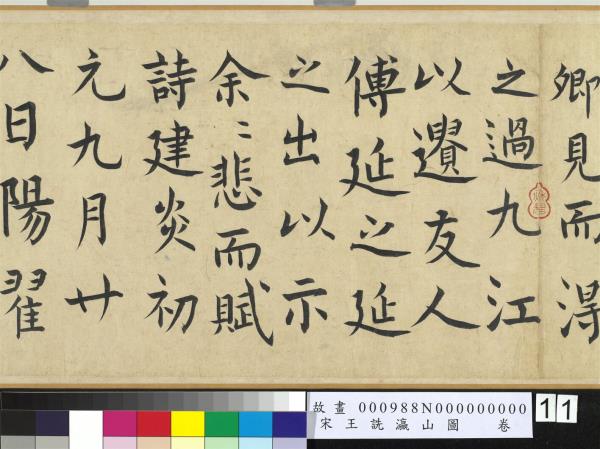 卿見而淂
之過九江
以遺友人
傅延之延
之出以示
余〻悲而賦
詩建炎初
元九月廿
八日陽翟
故畫 000988N000000000
宋王詵瀛山圖 卷
11